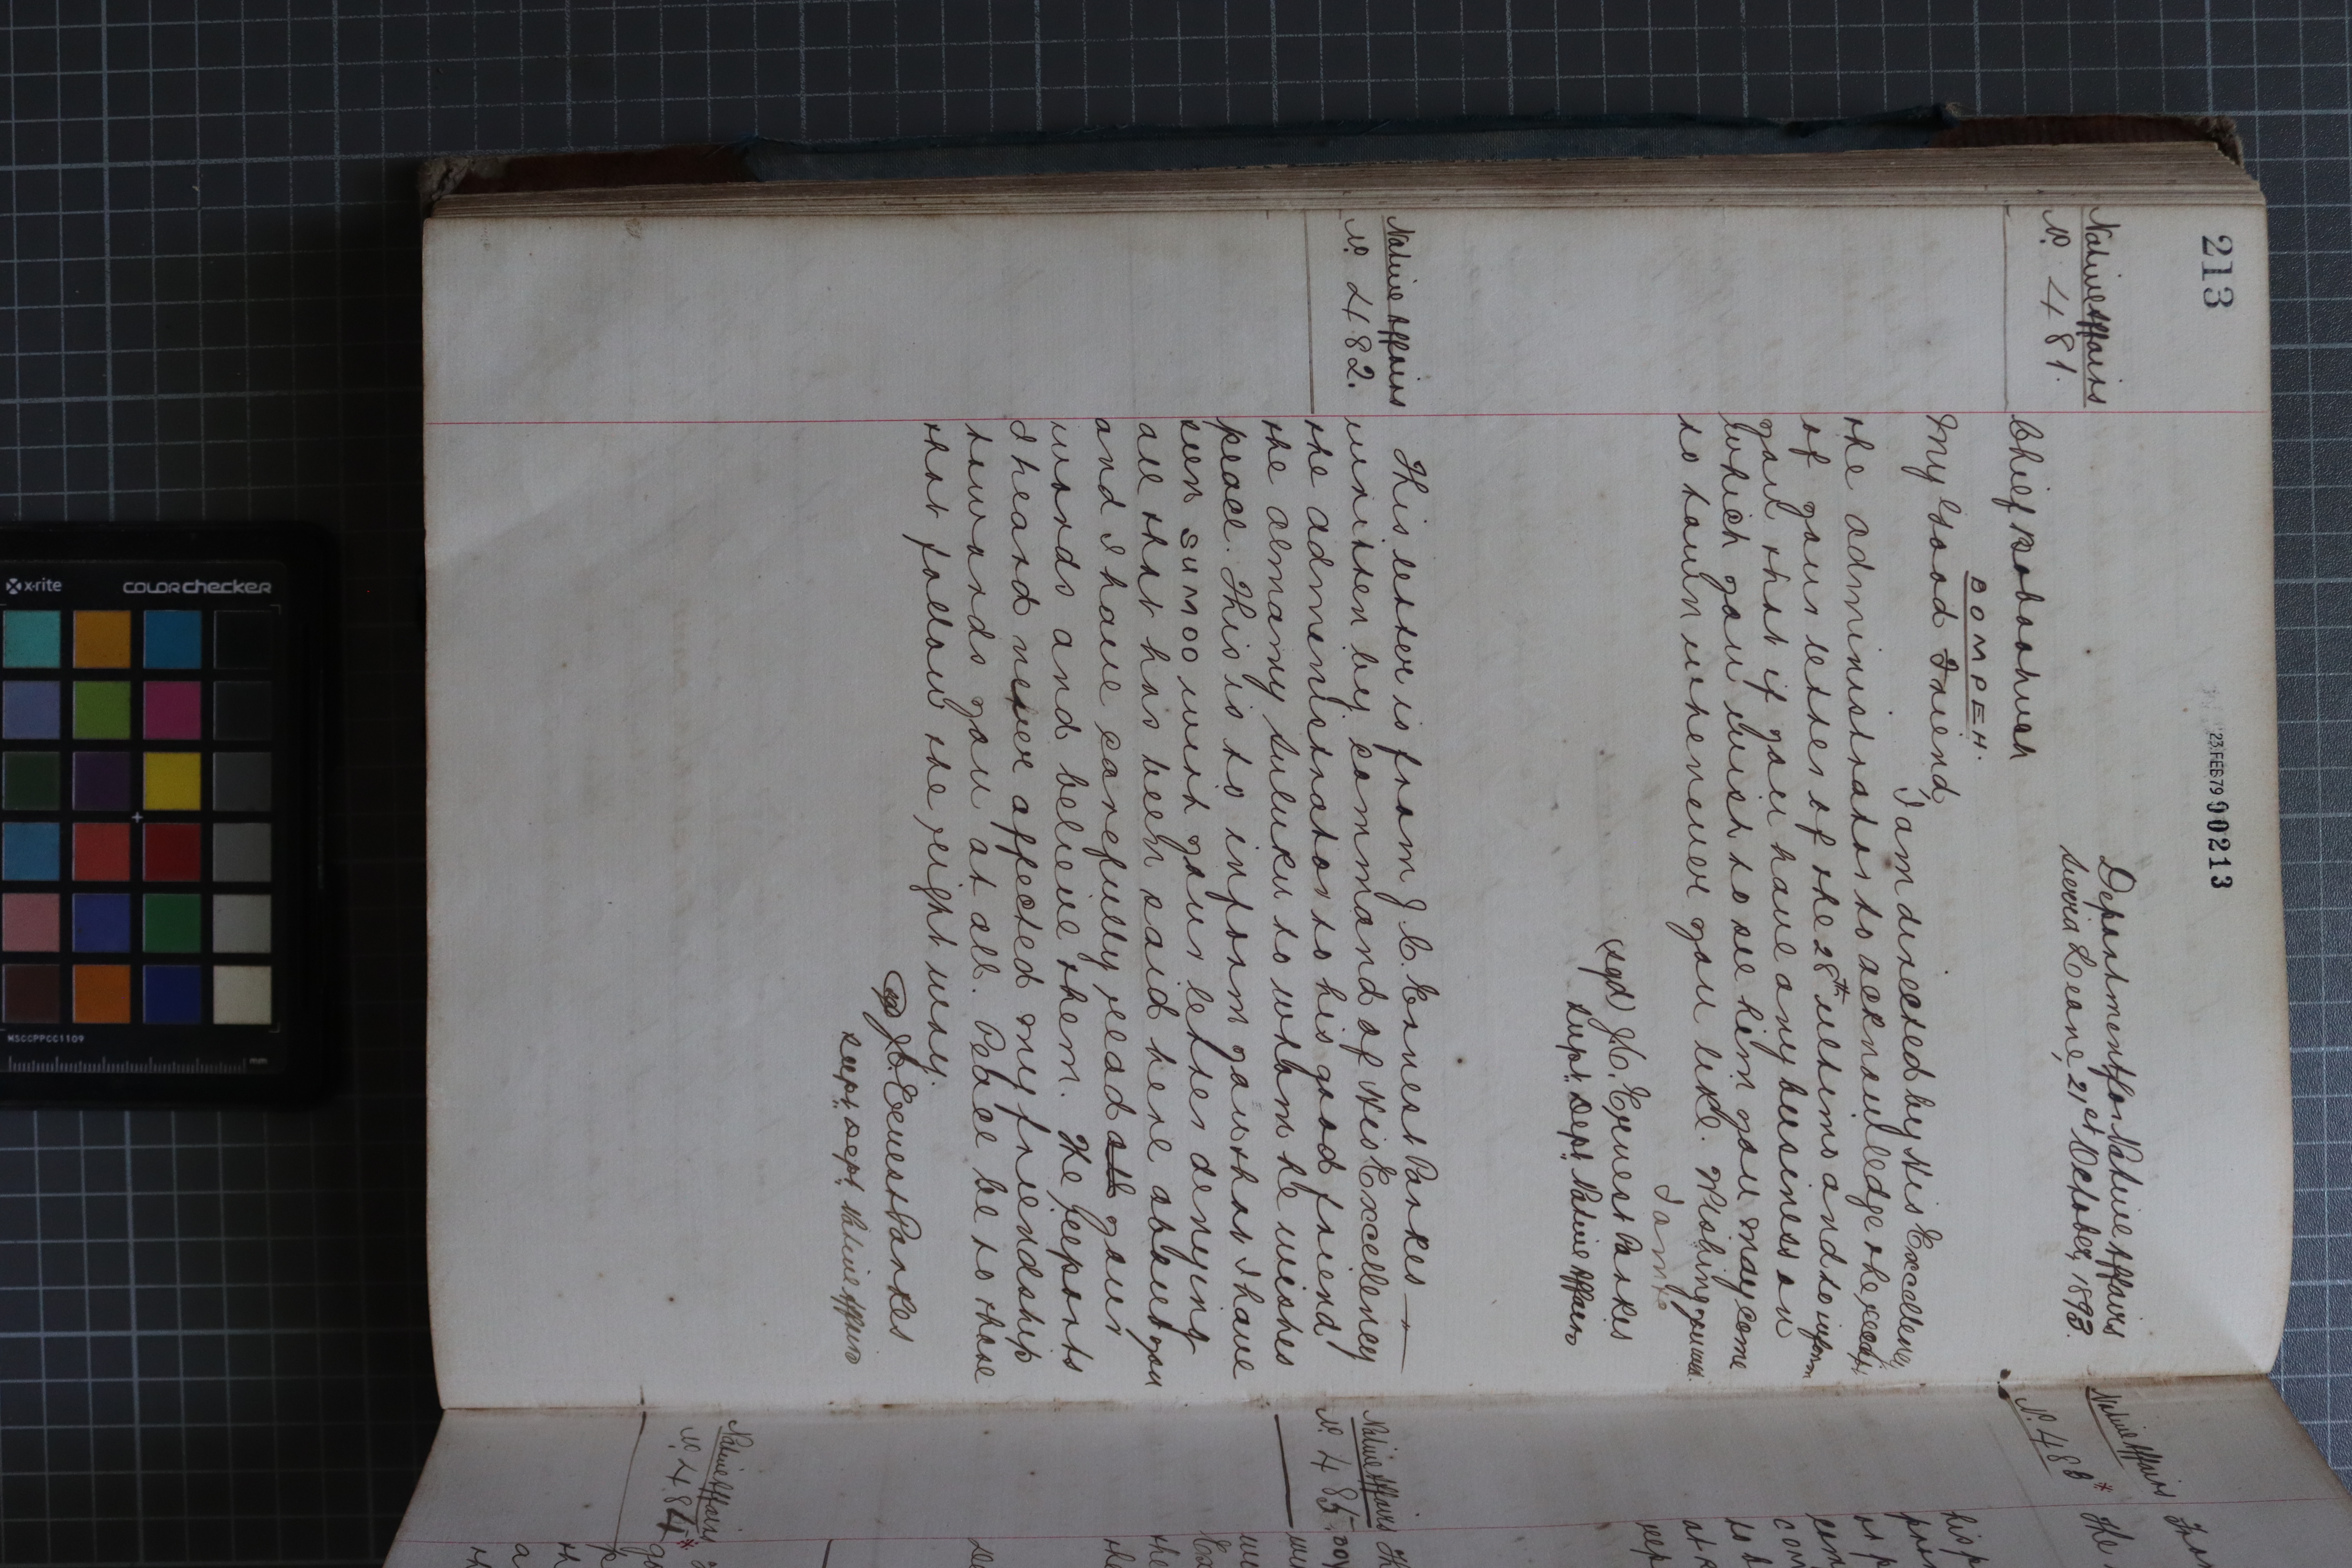 213
23 FEB 79 00213
Native Affairs
No. 481.
Department for Native Affairs
Sierra Leone, 21st October, 1893.
Chief
BOMPEH.
My Good Friend,
I am directed by His Excellency
the administrator to acknowledge the receipt
of your letter of the 28th ultimo and to inform
you that if you have any business on
which you wish to see him you may come
to town whenever you like. Wishing you well
I am &c
(sgd) J. C. Ernest Parkes
Supt: Dept: Native Affairs
Native Affairs
No. 482.
This letter is from J. C. Ernest Parkes —
written by command of His Excellency
the administrator to his good friend
the almamy Suluku to whom he wishes
peace. This is to inform you that I have
seen SUMOO with your letter denying
all that has been said here about you
and I have carefully read all your
words and believe them. The reports
I heard never affected my friendship
towards you at all. Peace be to those
that follow the right way.
J. C. Ernest Parkes
Supt: Dept: Native Affairs
Native Affairs
No. 483*
The
his
Native Affairs
No. 485
Native Affairs
No. 484*
x-rite
colorchecker
MSCCPPCC1109
mm